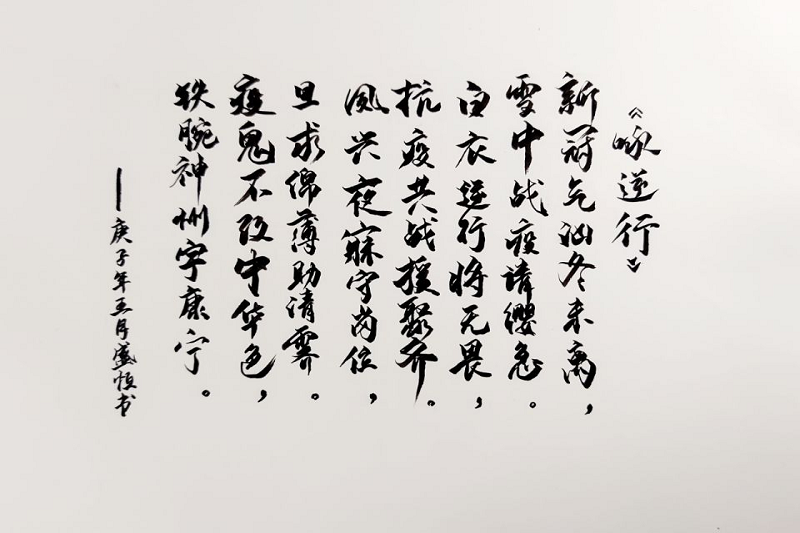 《咏逆行》
新冠气汹冬未离，
雪中战疫请缨急。
白衣逆行将无畏，
抗疫共战援聚齐。
风兴夜寐守岗位，
旦求绵薄助清霁。
疫鬼不改中华色，
铁腕神州宇康宁。
——庚子年五月盛恒书